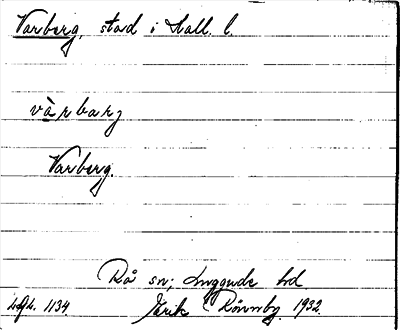 Varberg, stad i Hall. l.
vàrbarj
Varberg.
Rå sn; Luggude hd
1134 Erik Rönnby 1932